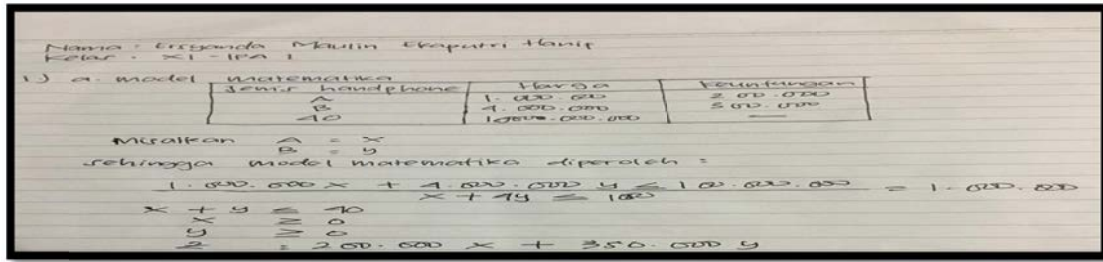 Nama : Ersyanda Maulin Ekaputri Hanip
Kelas : XI - IPA 1
1.) a. model matematika
Jenis handphone Harga Keuntungan
A 1.000.000 200.000
B 4.000.000
40
Misalkan A = x
B = y
sehingga model matematika diperoleh :
1.000.000 x + 4.000.000 y ≤ 100.000.000 = 1.000.000
x + 4y ≤ 100
x + y ≤ 40
x ≥ 0
y ≥ 0
z = 200.000 x + 350.000 y